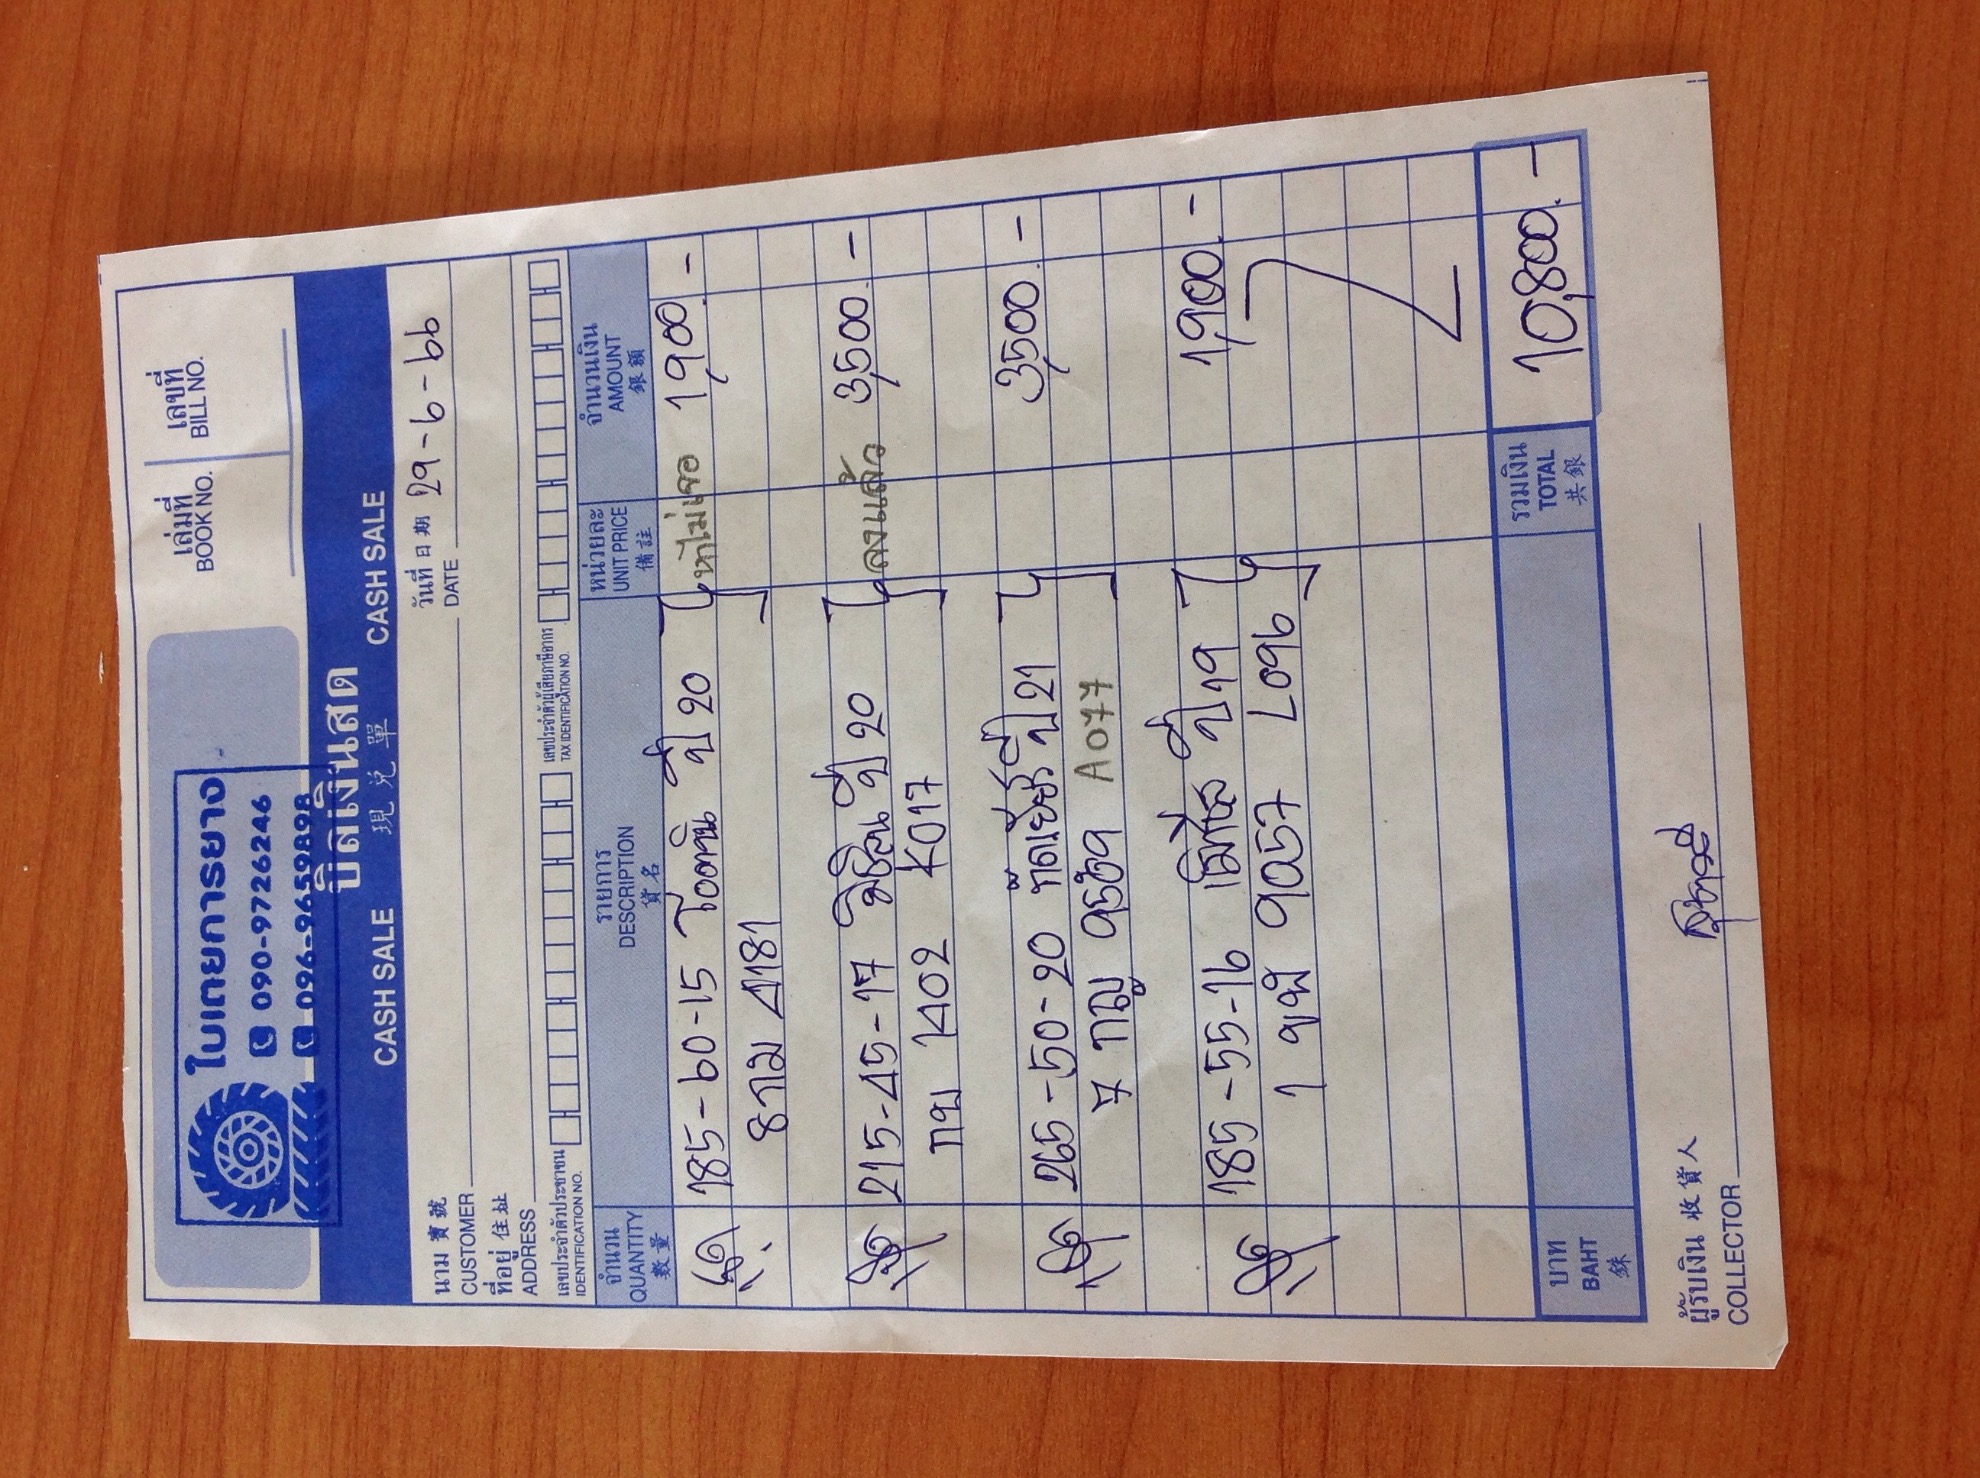 ใบเตยการยาง
090-9726246
096-9659898
เล่มที่
BOOK NO.
เลขที่
BILL NO.
บิลเงินสด
CASH SALE 現兌單 CASH SALE
นาม 寶號
CUSTOMER
วันที่ 日期
DATE 29-6-66
ที่อยู่ 住址
ADDRESS
เลขประจำตัวประชาชน
IDENTIFICATION NO.
เลขประจำตัวผู้เสียภาษีอากร
TAX IDENTIFICATION NO.
จำนวน
QUANTITY
數量
รายการ
DESCRIPTION
貨名
หน่วยละ
UNIT PRICE
備註
จำนวนเงิน
AMOUNT
銀額
185-60-15 โอตานิ ปี 20 หาไม่เจอ 1,900.-
8 4181
215-45-17 มิชลิน ปี 20 ลงแล้ว 3,500.-
กข 1402 K017
265-50-20 กู๊ดเยียร์ ปี 21 3,500.-
7 กญ A077
185-55-16 ปี 19 1,900.-
1 ขฬ 9057 L096
บาท
BAHT
銖
รวมเงิน
TOTAL
共銀
10,800.-
ผู้รับเงิน 收貨人
COLLECTOR